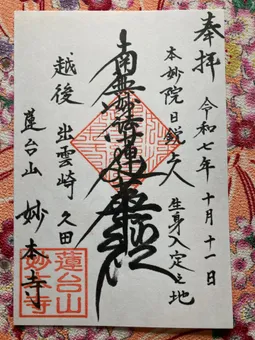 奉拝
令和七年十月十一日
本妙院日鋭上人
生身入定之地
南無妙法蓮華経
越後 出雲崎 久田
蓮台山 妙本寺
蓮台山
妙本寺